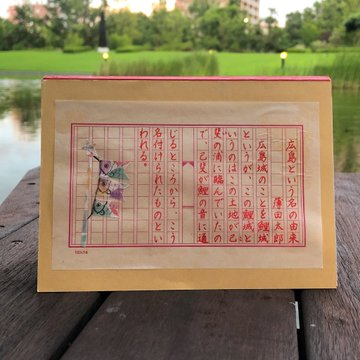 広島という名の由来
薄田太郎
広島城のことを鯉城
というが、この鯉城と
いうのはこの土地が己
斐の浦に臨んでいたの
で、己斐が鯉の音に通
じるところから、こう
名付けられたものとい
われる。